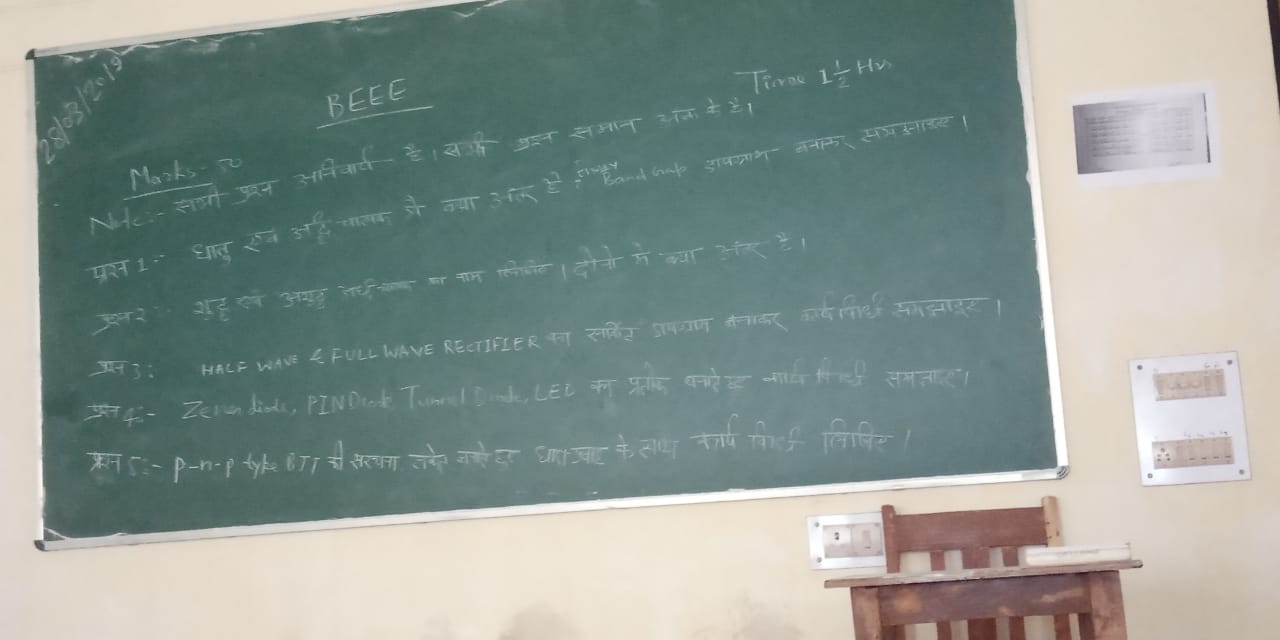 28/03/2019
BEEE
Time 1 1/2 Hrs
Marks - 50
Note:- सभी प्रश्न अनिवार्य है। सभी प्रश्न समान अंक के है।
प्रश्न 1:- धातु एवं अर्द्ध चालक में क्या अंतर है? Energy Band Gap डायग्राम बनाकर समझाइए।
प्रश्न 2:- शुद्ध एवं अशुद्ध का नाम लिखिए। दोनो में क्या अंतर है।
प्रश्न 3: HALF WAVE & FULL WAVE RECTIFIER का सर्किट डायग्राम बनाकर कार्य विधी समझाइए।
प्रश्न 4:- Zener diode, PIN Diode Tunnel Diode, LED का प्रतीक बनाते हुए कार्य विधी समझाइए।
प्रश्न 5:- P-n-p type BJT की संरचना के साथ कार्य विधी लिखिए।